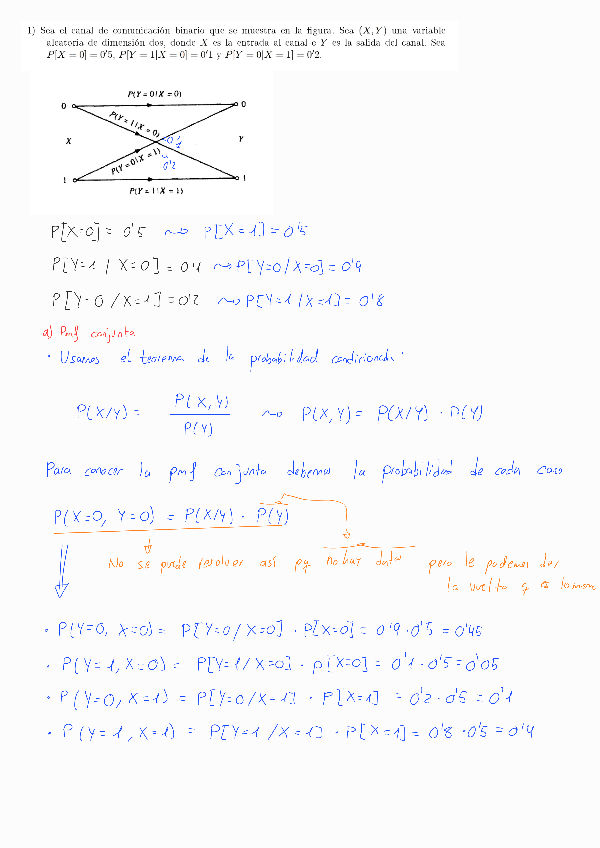 1) Sea el canal de comunicación binario que se muestra en la figura. Sea (X, Y) una variable
aleatoria de dimensión dos, donde X es la entrada al canal e Y es la salida del canal. Sea
P[X = 0] = 0'5, P[Y = 1|X = 0] = 0'1 y P[Y = 0|X = 1] = 0'2.
P(Y = 0 | X = 0)
0 0
P(Y = 1 | X = 0) 0'1
X Y
P(Y = 0 | X = 1) 0'2
1 1
P(Y = 1 | X = 1)
P[X=0] = 0'5 ⇝ P[X=1] = 0'5
P[Y=1 / X=0] = 0'1 ⇝ P[Y=0/X=0] = 0'9
P[Y=0 / X=1] = 0'2 ⇝ P[Y=1/X=1] = 0'8
a) Pmf conjunta
· Usamos el teorema de la probabilidad condicionada:
P(X/Y) = P(X, Y) / P(Y) ⇝ P(X, Y) = P(X/Y) · P(Y)
Para conocer la pmf conjunta debemos la probabilidad de cada caso
P(X=0, Y=0) = P(X/Y) · P(Y)
No se puede resolver así pq no hay datos pero le podemos dar
la vuelta q es lo mismo
· P(Y=0, X=0) = P[Y=0/X=0] · P[X=0] = 0'9 · 0'5 = 0'45
· P(Y=1, X=0) = P[Y=1/X=0] · P[X=0] = 0'1 · 0'5 = 0'05
· P(Y=0, X=1) = P[Y=0/X=1] · P[X=1] = 0'2 · 0'5 = 0'1
· P(Y=1, X=1) = P[Y=1/X=1] · P[X=1] = 0'8 · 0'5 = 0'4